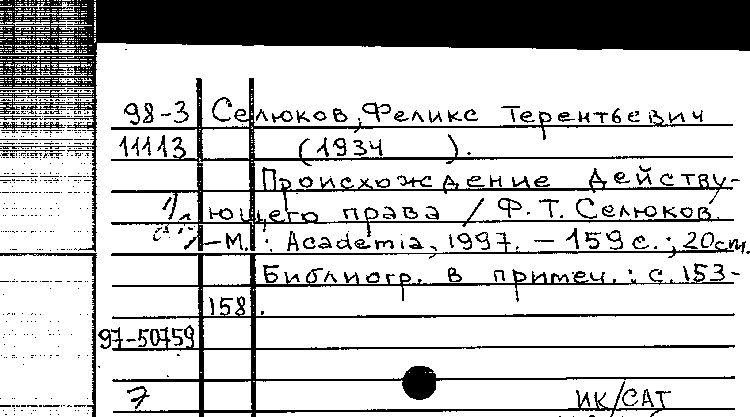 98-3 Селюков, Феликс Терентьевич
11113 (1934 ).
Происхождение действу-
ющего права / Ф. Т. Селюков.
-М. : Academia, 1997. - 159 с. ; 20 см.
Библиогр. в примеч. : с. 153-
158.
97-50759
7 ИК/САТ